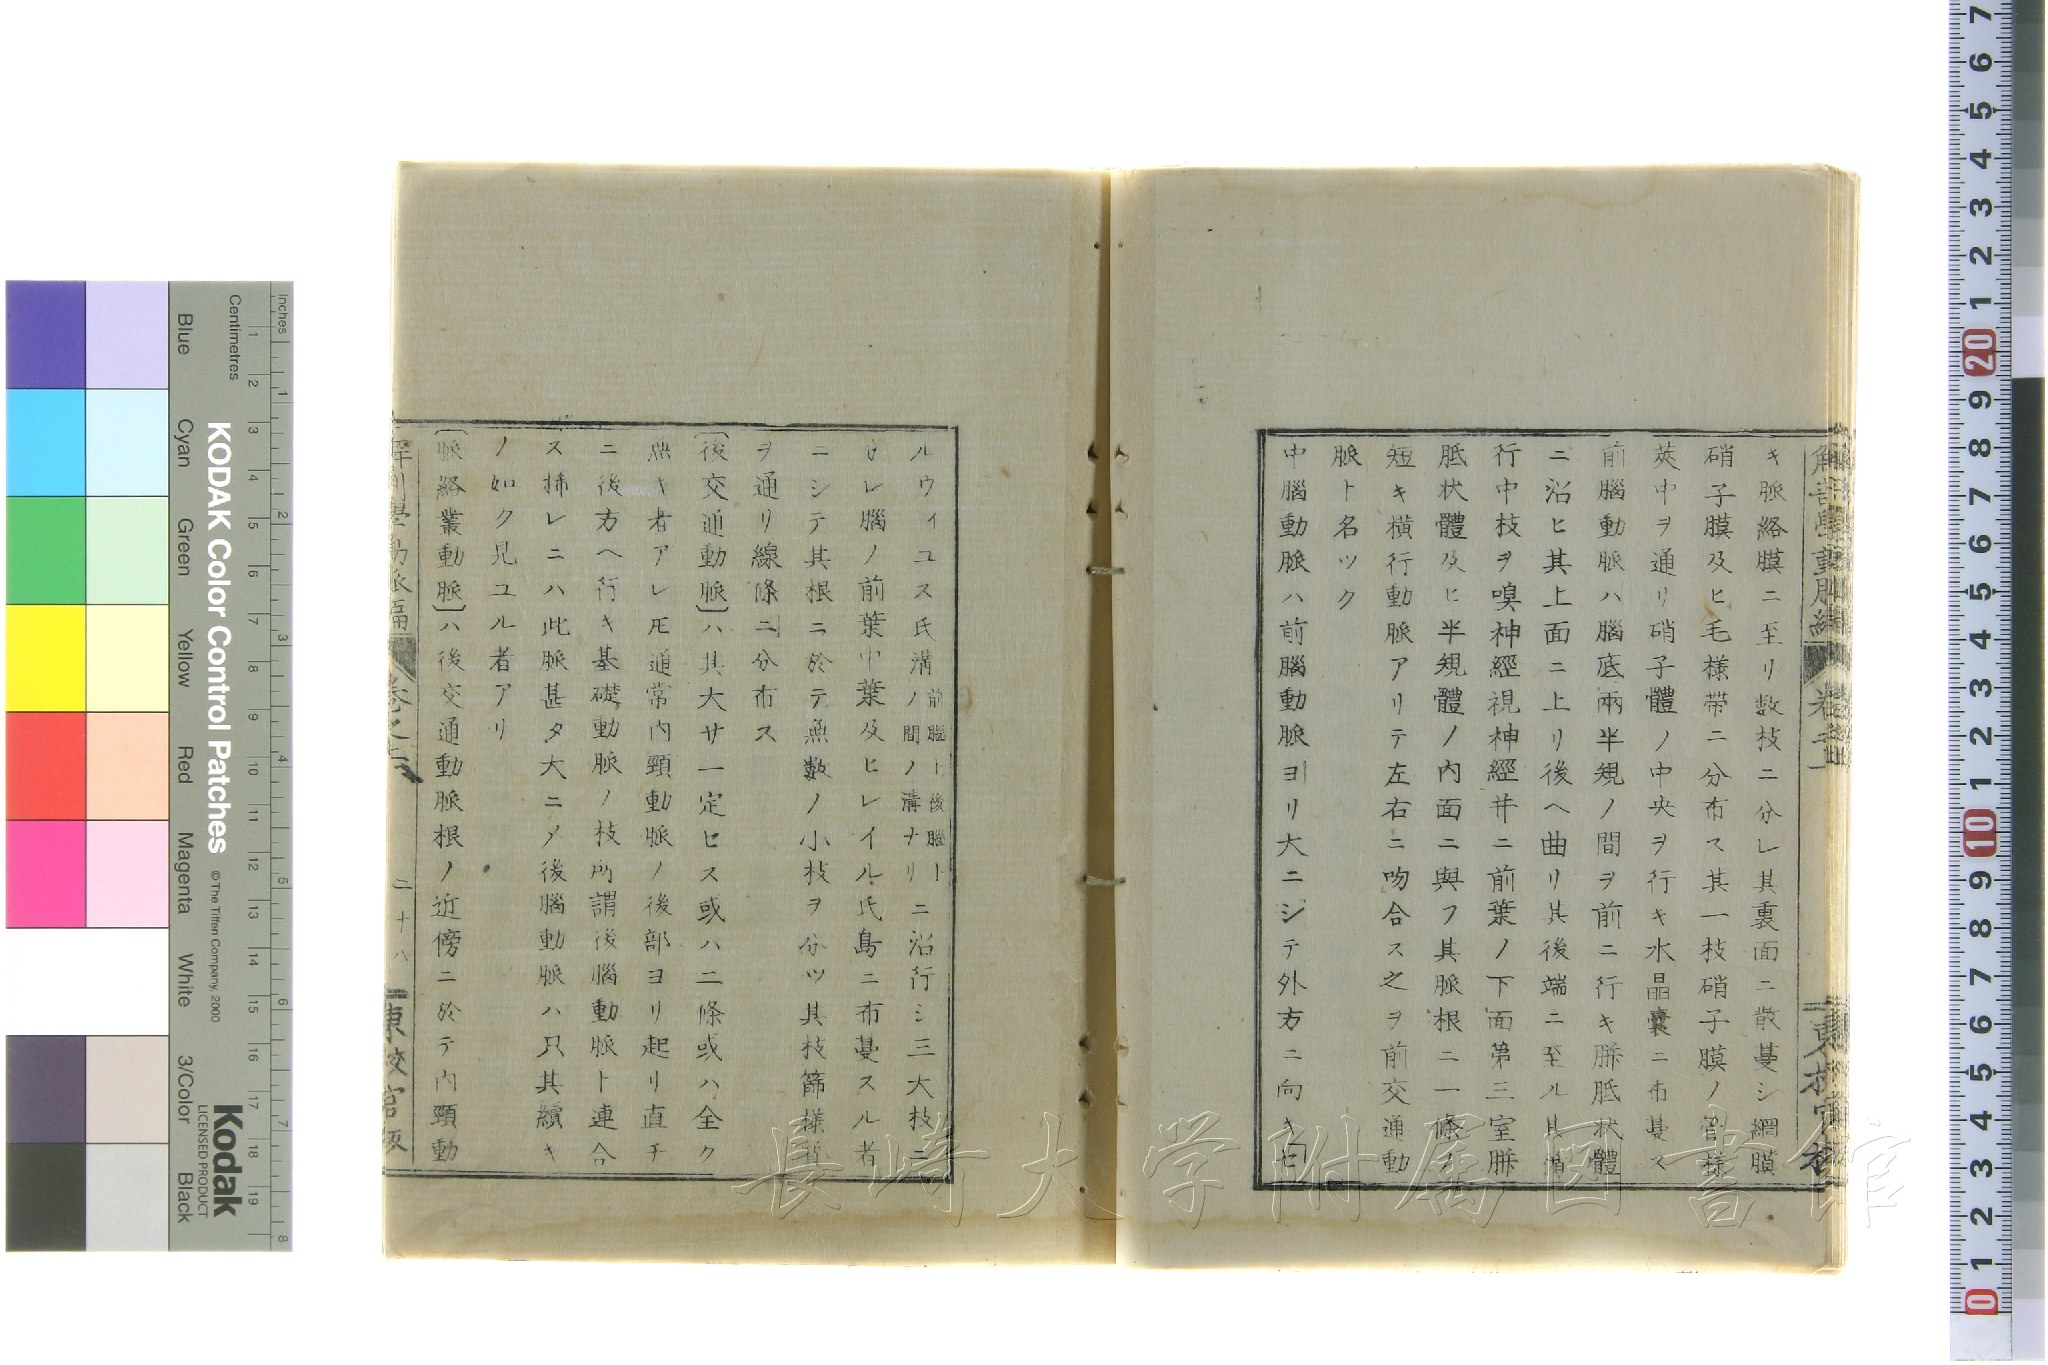 キ脈絡膜ニ至リ数枝ニ分レ其裏面ニ散蔓シ網膜
硝子膜及ヒ毛様帯ニ分布ス其一枝硝子膜ノ管様
莢中ヲ通リ硝子體ノ中央ヲ行キ水晶嚢ニ布蔓ス
前腦動脈ハ腦底兩半規ノ間ヲ前ニ行キ胼胝状體
ニ沿ヒ其上面ニ上リ後ヘ曲リ其後端ニ至ル其
行中枝ヲ嗅神經視神經并ニ前葉ノ下面第三室胼
胝状體及ヒ半規體ノ内面ニ與フ其脈根ニ一條ノ
短キ横行動脈アリテ左右ニ吻合ス之ヲ前交通動
脈ト名ツク
中腦動脈ハ前腦動脈ヨリ大ニシテ外方ニ向キ
ルウィユス氏溝ノ間ノ溝ナリ前腦ト後腦トニ沿行シ三大枝ニ
分レ腦ノ前葉中葉及ヒレイル氏島ニ布蔓スル者
ニシテ其根ニ於テ無数ノ小枝ヲ分ツ其枝篩様質
ヲ通リ線條ニ分布ス
〔後交通動脈〕ハ其大サ一定セス或ハ二條或ハ全ク
無キ者アレ𪜈通常内頸動脈ノ後部ヨリ起リ直チ
ニ後方ヘ行キ基礎動脈ノ枝所謂後腦動脈ト連合
ス稀レニハ此脈甚タ大ニメ後腦動脈ハ只其續キ
ノ如ク見ユル者アリ
〔脈絡叢動脈〕ハ後交通動脈根ノ近傍ニ於テ内頸動
解剖學動脈編
二十八
東校官版
長崎大学附属図書館
KODAK Color Control Patches
© The Tiffen Company, 2000
Kodak
LICENSED PRODUCT
Inches
Centimetres
Blue
Cyan
Green
Yellow
Red
Magenta
White
3/Color
Black